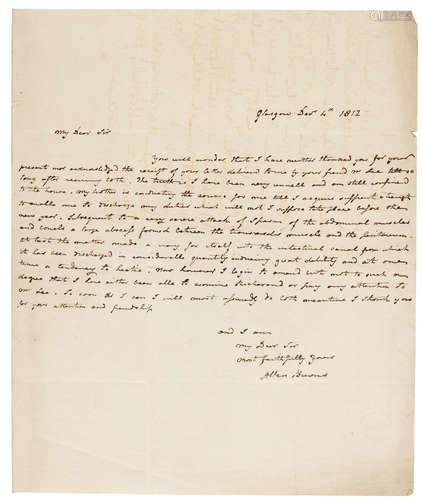 Glasgow Decr 4th 1812
My Dear Sir
You will wonder that I have neither thanked you for your
present nor acknowledged the receipt of your letter delivered to me by your friend Mr Lee till so
long after receiving both. The truth is I have been very unwell and am still confined
to the house. My brother is conducting the course for me till I acquire sufficient strength
to enable me to discharge my duties which will not I suppose take place before the
new year. Subsequent to a very severe attack of Spasm of the abdominal muscles
and bowels a large abscess formed between the transversalis muscle and the peritoneum.
At last the matter made a way for itself into the intestinal canal from which
it has been discharged in considerable quantity inducing great debility and at one
time a tendency to hectic. Now however I begin to amend but not to such a
degree that I have either been able to examine or pay any attention to
Mr Lee. So soon as I can I will most assuredly do both meantime I thank you
for your attention and friendship
and I am
My Dear Sir
most faithfully yours
Allan Burns